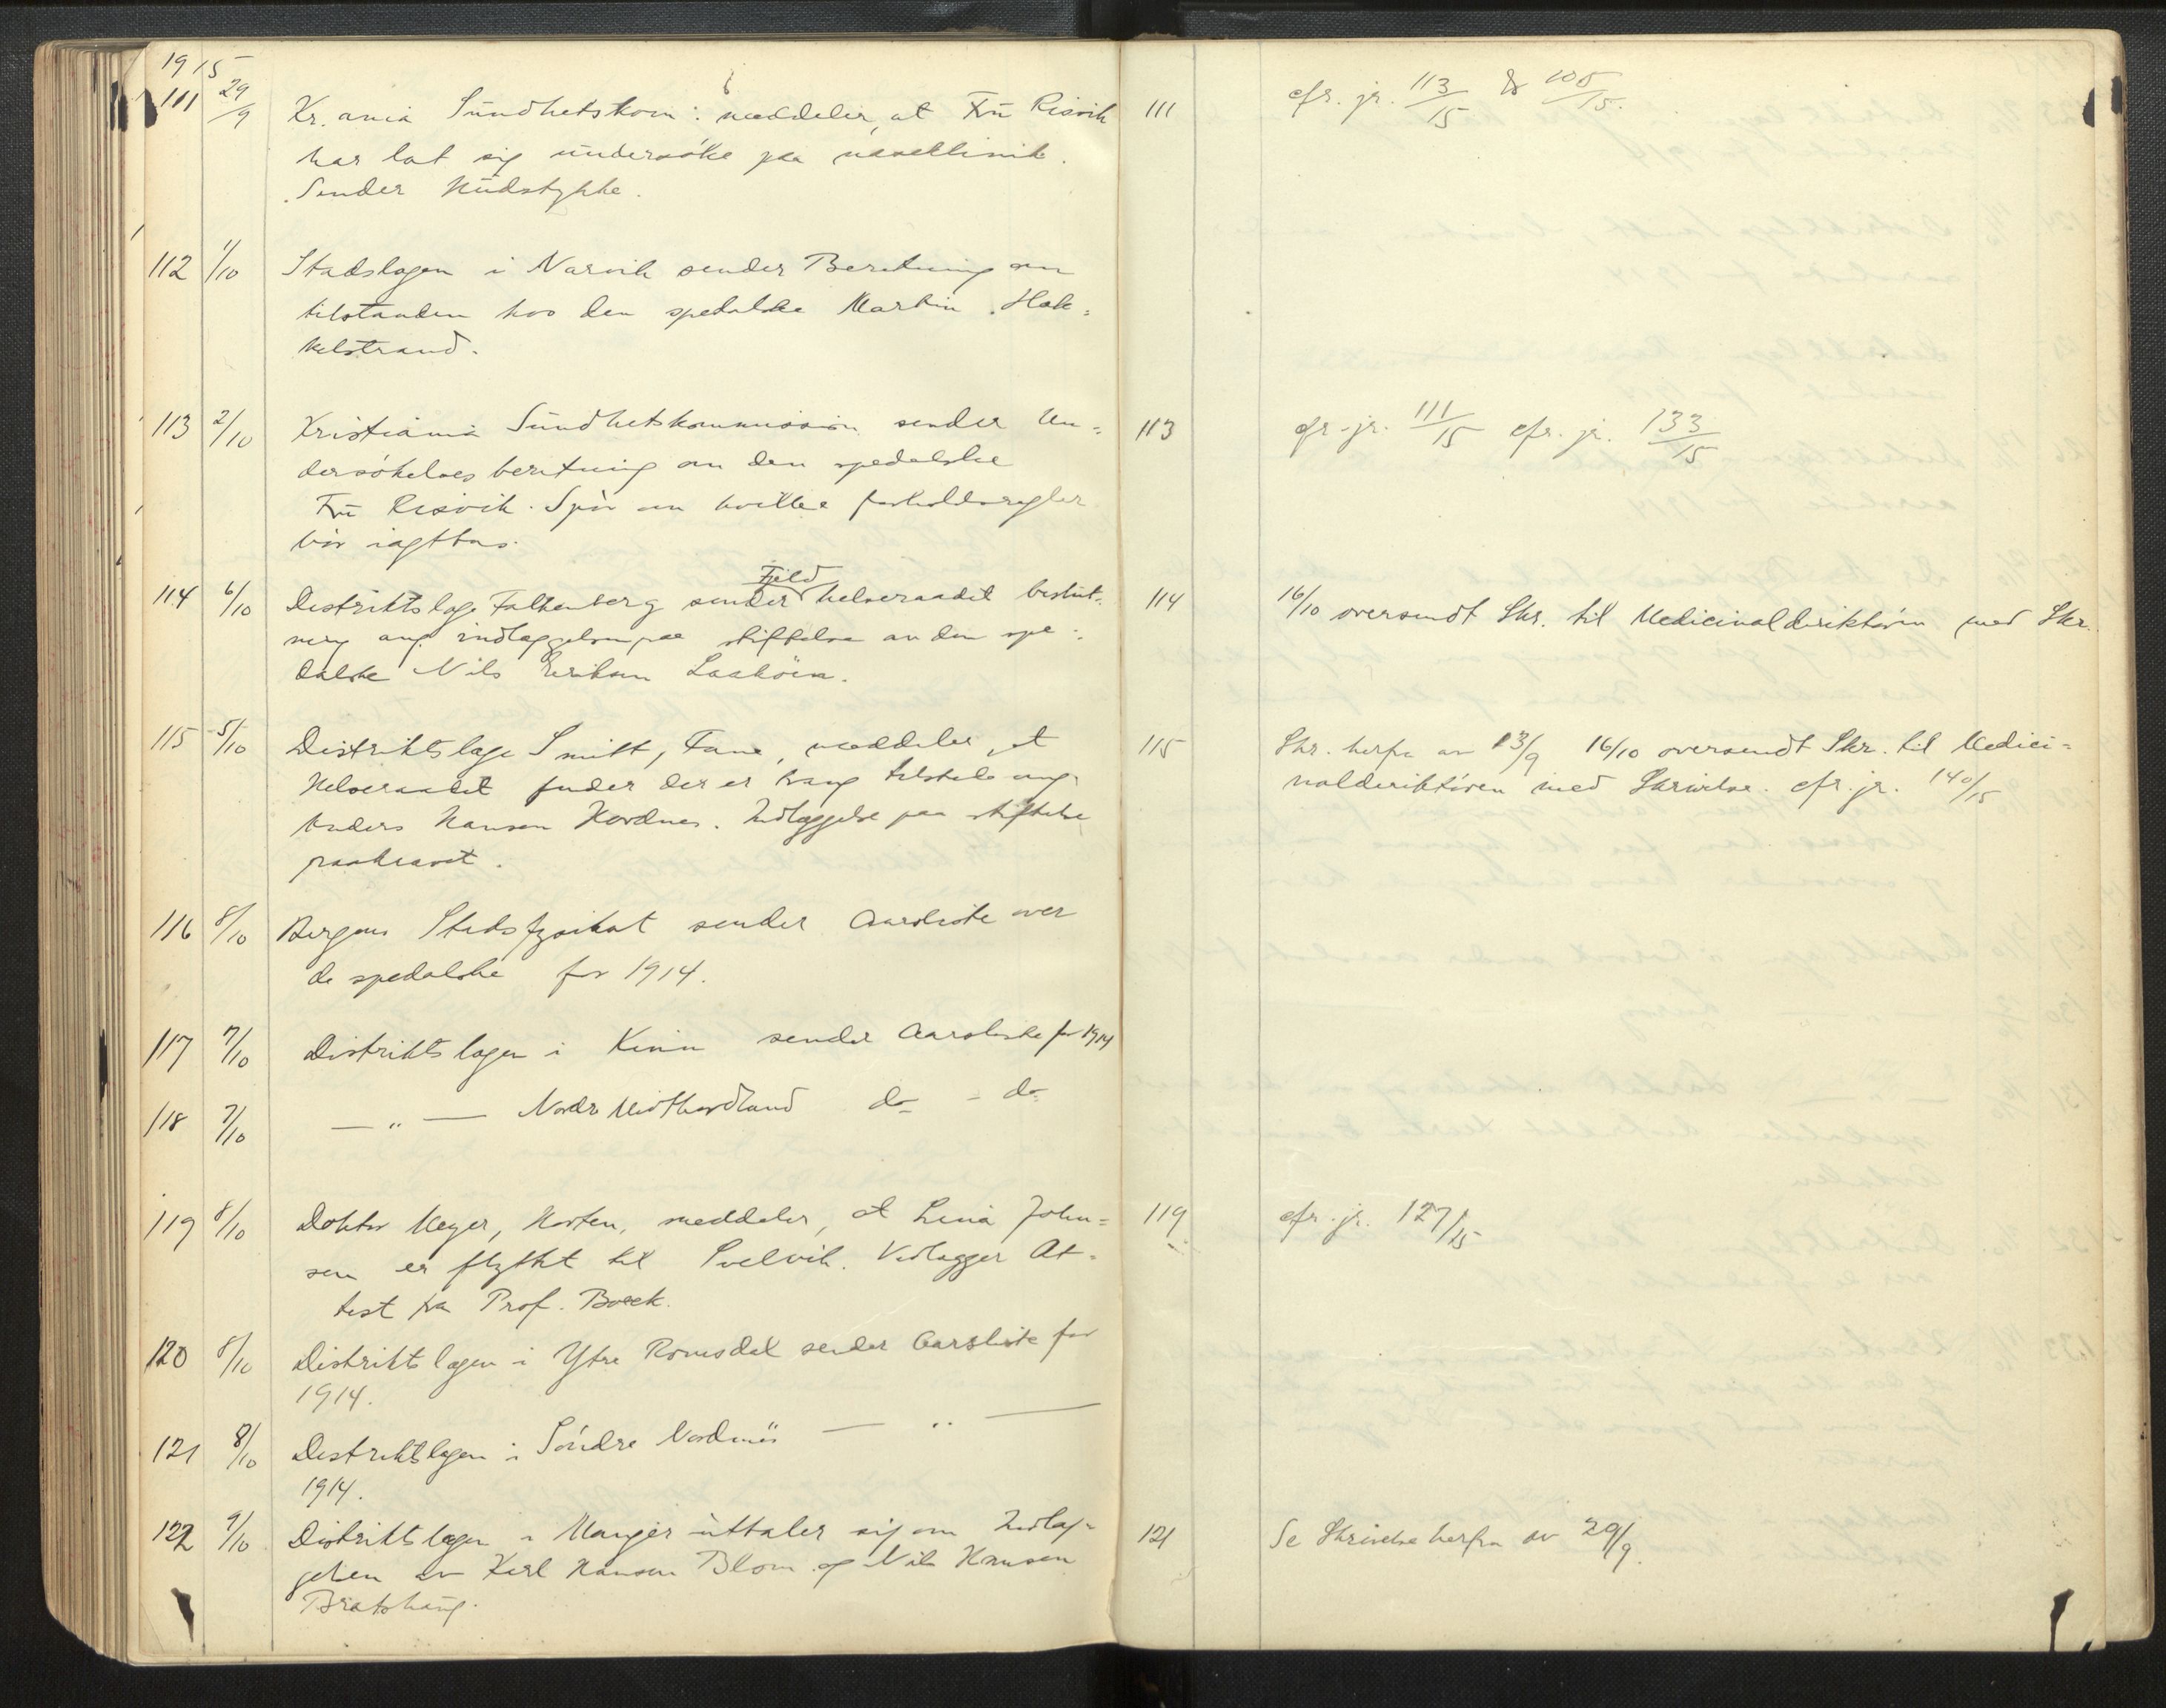 1915
111 29/9 Kr.ania Sundhetskom: meddeler, at Fru Risvik
har lat sig undersöke paa
Sender Hudstykke.
112 1/10 Stadslægen i Narvik sender Beretning om
tilstanden hos den spedalske Martin Hæk=
kelstrand.
113 2/10 Kristiania Sundhetskommission sender Un=
dersökelses beretning om den spedalske
Fru Risvik. Spör om hvilke forholdsregler
bör iagttas.
114 6/10 Distriktslæge Falkenberg sender Fjeld helseraadet beslut-
ning ang. indlæggelsen paa stiftelse av den spe=
dalske Nils Eriksen Laaköen.
115 5/10 Distriktslæge Smitt, Fane, meddeler, at
Helseraadet finder der er trang tilstede ang.
Anders Hansen Hordnes. Indlæggelse paa stiftelse
paakrævet.
116 8/10 Bergens Stadsfysikat sender Aarsliste over
de spedalske for 1914.
117 7/10 Distriktslægen i Kinn sender Aarsliste for 1914
118 7/10 — „ — Nordre Midthordland do - do
119 8/10 Doktor Meyer, Horten, meddeler, at Lina John=
sen er flyttet til Svelvik. Vedlægger At=
test fra Prof. Boeck.
120 8/10 Distriktslægen i Ytre Romsdal sender Aarsliste for
1914.
121 8/10 Distriktslægen i Söndre Nordmör — „ —
1914.
122 9/10 Distriktslægen i Manger uttaler sig om Indlæg=
gelsen av Karl Hansen Blom og Nils Hansen
Bratshaug.
111 cfr. jr. 113/15 & 105/15.
113 cfr. jr. 111/15 cfr. jr. 133/15
114 16/10 oversendt Skr. til Medicinaldirektören med Skr.
115 Skr. herfra av 13/9 16/10 oversendt Skr. til Medici=
naldirektören med Skrivelse. cfr. jr. 140/15
119 cfr. jr. 127/15
121 Se Skrivelse herfra av 29/9.